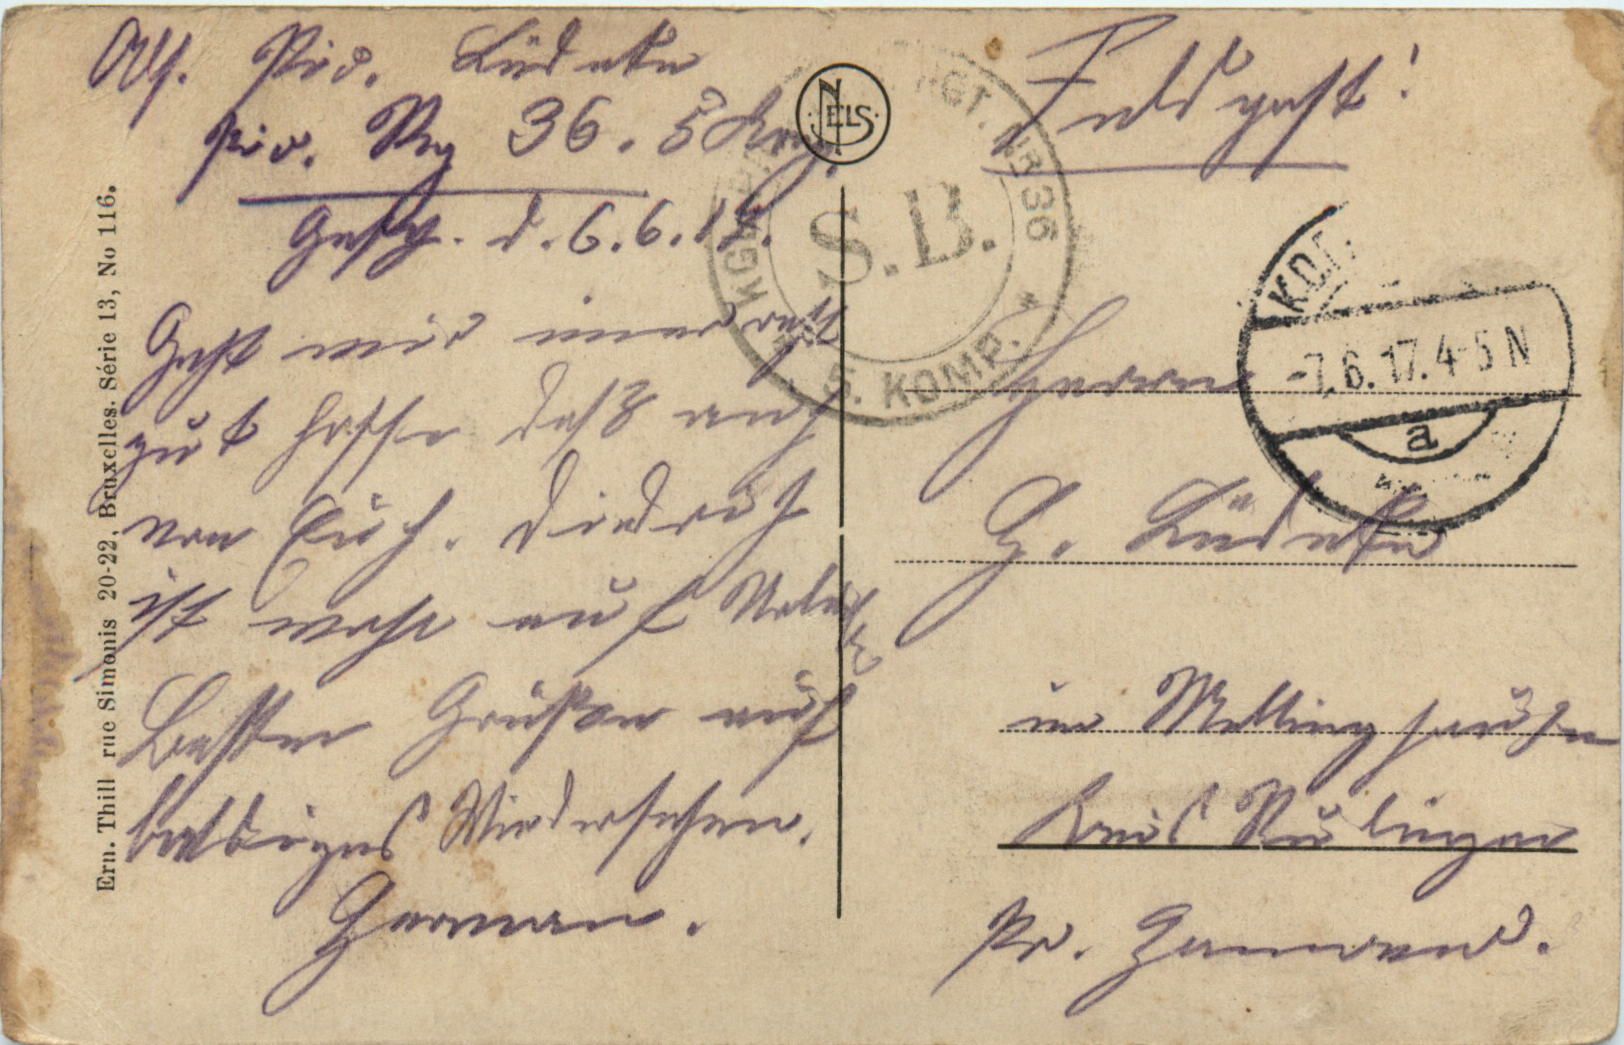 Abs. Pio. Lüdeke
Pio. Reg 36. 5 Kog.
Geschr. d. 6.6.17.
Geht mir immer
gut hoffe daß auch
von Euch. Diedrich
ist wohl auf Urlaub
Besten Grüßen auf
baldiges Wiedersehen.
Herman.
Ern. Thill rue Simonis 20-22, Bruxelles. Série 13, No 116.
NELS
RGT. NR 36
S.B.
5. KOMP.
Feldpost!
-7.6.17.4-5N
a
Herrn
H. Lüdeke
in Mellinghausen
Kreis Sulingen
Pr. Hannover.